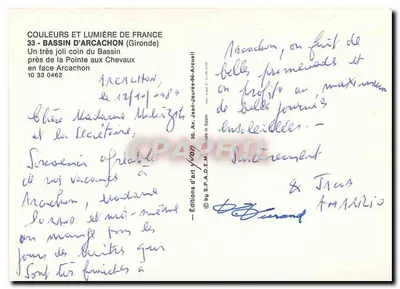 COULEURS ET LUMIÈRE DE FRANCE
33 - BASSIN D'ARCACHON (Gironde)
Un très joli coin du Bassin
près de la Pointe aux Chevaux
en face Arcachon
10 33 0462
ARCACHON,
le 12/10/1989
Chère Madame
et la Secrétaire,
Souvenir agréable
de nos vacances à
Arcachon, Madame
DURAND et moi-même
on mange tous les
jours des huîtres qui
sont très fraîches à
Arcachon, on fait de
belles promenades et
on profite au maximum
de belles journées
ensoleillées -
Sincèrement
Durand
& Jack
Éditions d'art yvon
30, Av. Jean-Jaurès-94-Arcueil
by S.P.A.D.E.M.
CPArama.com